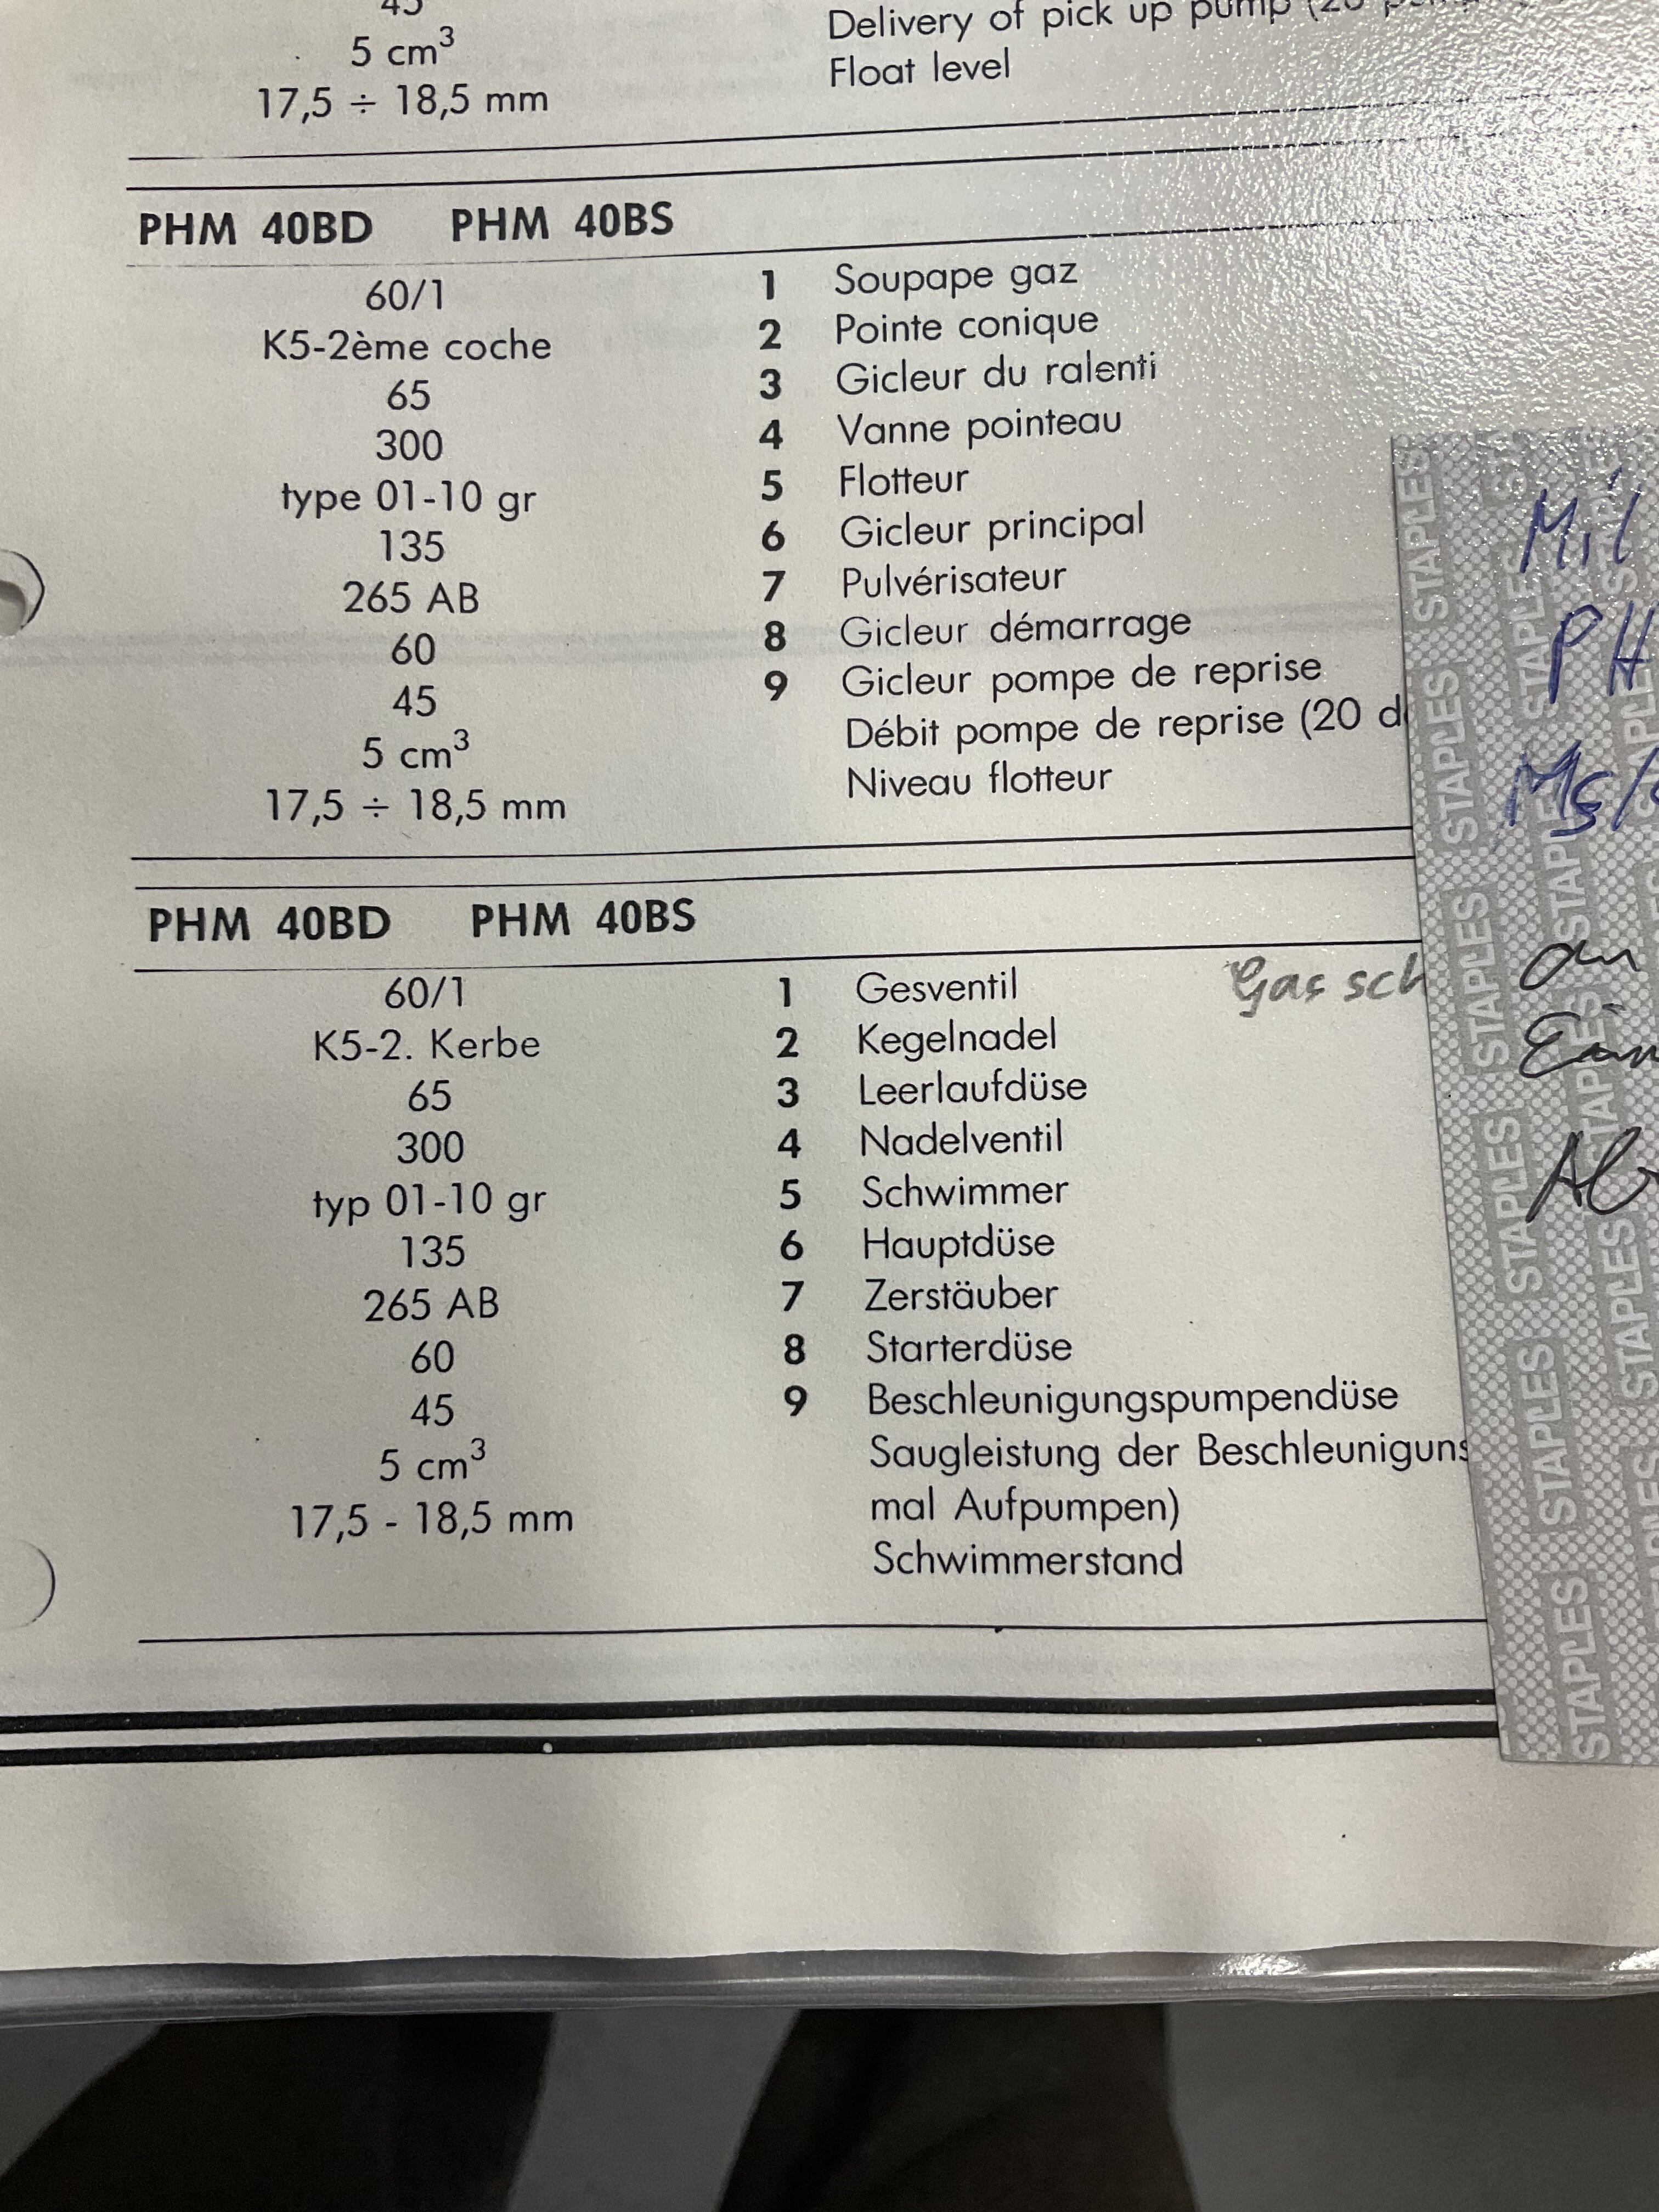 45 Delivery of pick up pump (20
5 cm³ Float level
17,5 ÷ 18,5 mm
PHM 40BD PHM 40BS
60/1 1 Soupape gaz
K5-2ème coche 2 Pointe conique
65 3 Gicleur du ralenti
300 4 Vanne pointeau
type 01-10 gr 5 Flotteur
135 6 Gicleur principal
265 AB 7 Pulvérisateur
60 8 Gicleur démarrage
45 9 Gicleur pompe de reprise
5 cm³ Débit pompe de reprise (20
17,5 ÷ 18,5 mm Niveau flotteur
PHM 40BD PHM 40BS
60/1 1 Gesventil Gas sch
K5-2. Kerbe 2 Kegelnadel
65 3 Leerlaufdüse
300 4 Nadelventil
typ 01-10 gr 5 Schwimmer
135 6 Hauptdüse
265 AB 7 Zerstäuber
60 8 Starterdüse
45 9 Beschleunigungspumpendüse
5 cm³ Saugleistung der Beschleuniguns
17,5 - 18,5 mm mal Aufpumpen)
Schwimmerstand
STAPLES STAPLES STAPLES STAPLES STAPLES STAPLES
Mil
PH